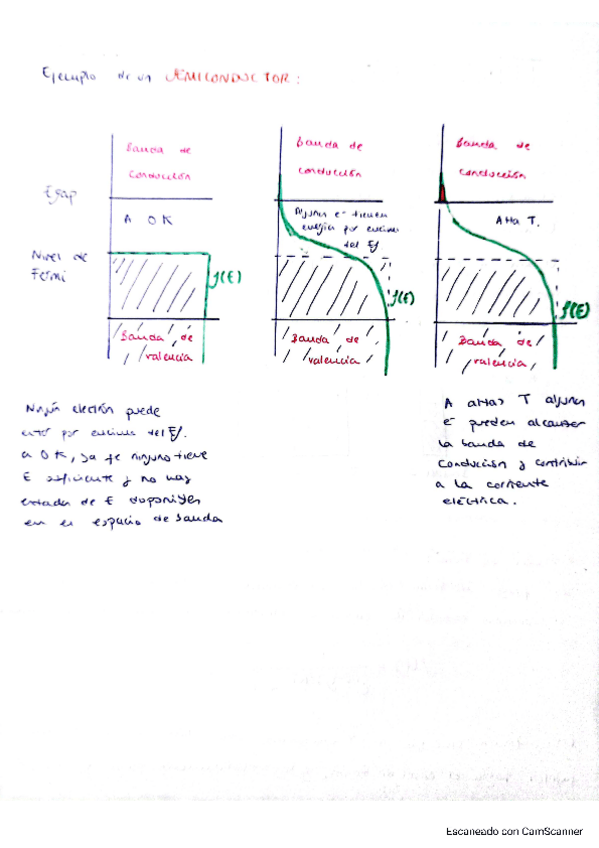 Ejemplo de un SEMICONDUCTOR:
Banda de
Conducción
Egap
A 0 K
Nivel de
Fermi
f(E)
Banda de
valencia
Banda de
conducción
Algunos e⁻ tienen
energía por encima
del Ef
f(E)
Banda de
valencia
Banda de
conducción
Alta T.
f(E)
Banda de
valencia
Ningún electrón puede
estar por encima del Ef.
a 0K, ya q ninguno tiene
E suficiente y no hay
estados de E disponibles
en el espacio de banda
A altas T algunos
e⁻ pueden alcanzar
la banda de
conducción y contribuir
a la corriente
eléctrica.
Escaneado con CamScanner